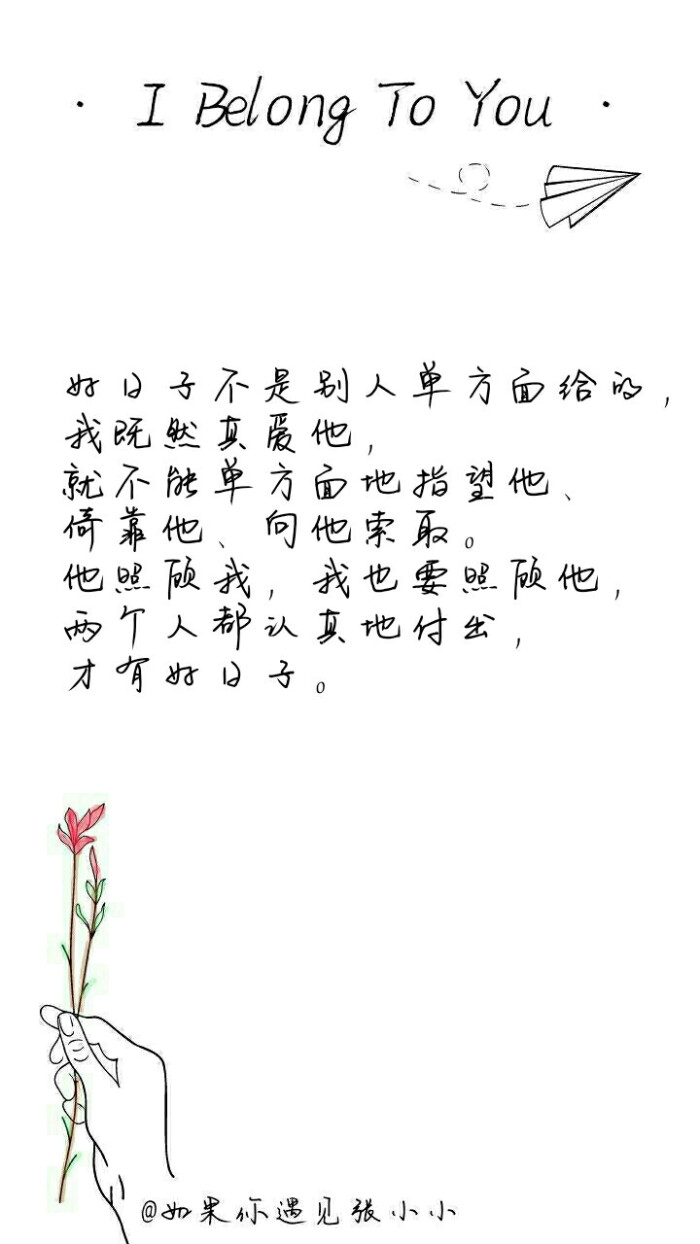 · I Belong To You ·
好日子不是别人单方面给的，
我既然真爱他，
就不能单方面地指望他、
倚靠他、向他索取。
他照顾我，我也要照顾他，
两个人都认真地付出，
才有好日子。
@如果你遇见张小小